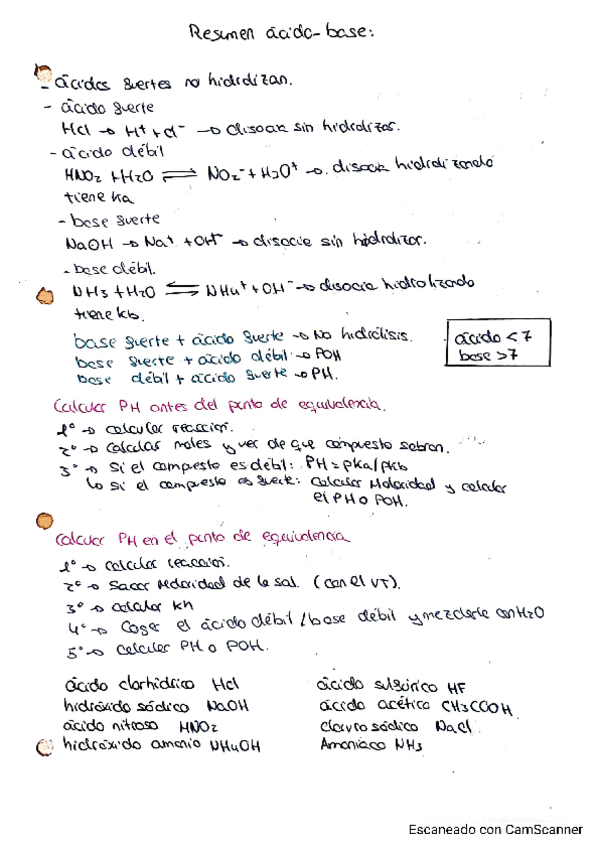 Resumen ácido-base:
- ácidos fuertes no hidrolizan.
- ácido fuerte
HCl → H⁺ + Cl⁻ → disocia sin hidrolizar.
- ácido débil
HNO₂ + H₂O ⇌ NO₂⁻ + H₃O⁺ → disocia hidrolizando
tiene ka
- base fuerte
NaOH → Na⁺ + OH⁻ → disocia sin hidrolizar.
- base débil.
NH₃ + H₂O ⇌ NH₄⁺ + OH⁻ → disocia hidrolizado
tiene kb.
base fuerte + ácido fuerte → No hidrólisis.
base fuerte + ácido débil → POH
base débil + ácido fuerte → PH.
ácido < 7
base > 7
Calcular PH antes del punto de equivalencia.
1º → calcular reacción.
2º → calcular moles y ver de que compuesto sobran.
3º → Si el compuesto es débil: PH = pka/pkb
↳ si el compuesto es fuerte: calcular Molaridad y calcular
el PH o POH.
Calcular PH en el punto de equivalencia
1º → calcular reacción.
2º → Sacar Molaridad de la sal. (con el VT).
3º → calcular kh
4º → Coger el ácido débil / base débil y mezclarla con H₂O
5º → calcular PH o POH.
ácido clorhídrico HCl
hidróxido sódico NaOH
ácido nitroso HNO₂
hidróxido amonio NH₄OH
ácido sulfúrico HF
ácido acético CH₃COOH
cloruro sódico NaCl
Amoniaco NH₃
Escaneado con CamScanner